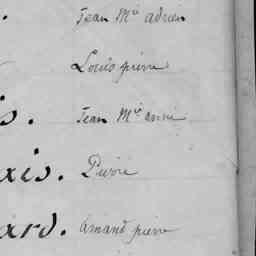 . Jean Mie adrien
Louis pierre
s. Jean Mie aimé
xis. Pierre
ard. amand pierre